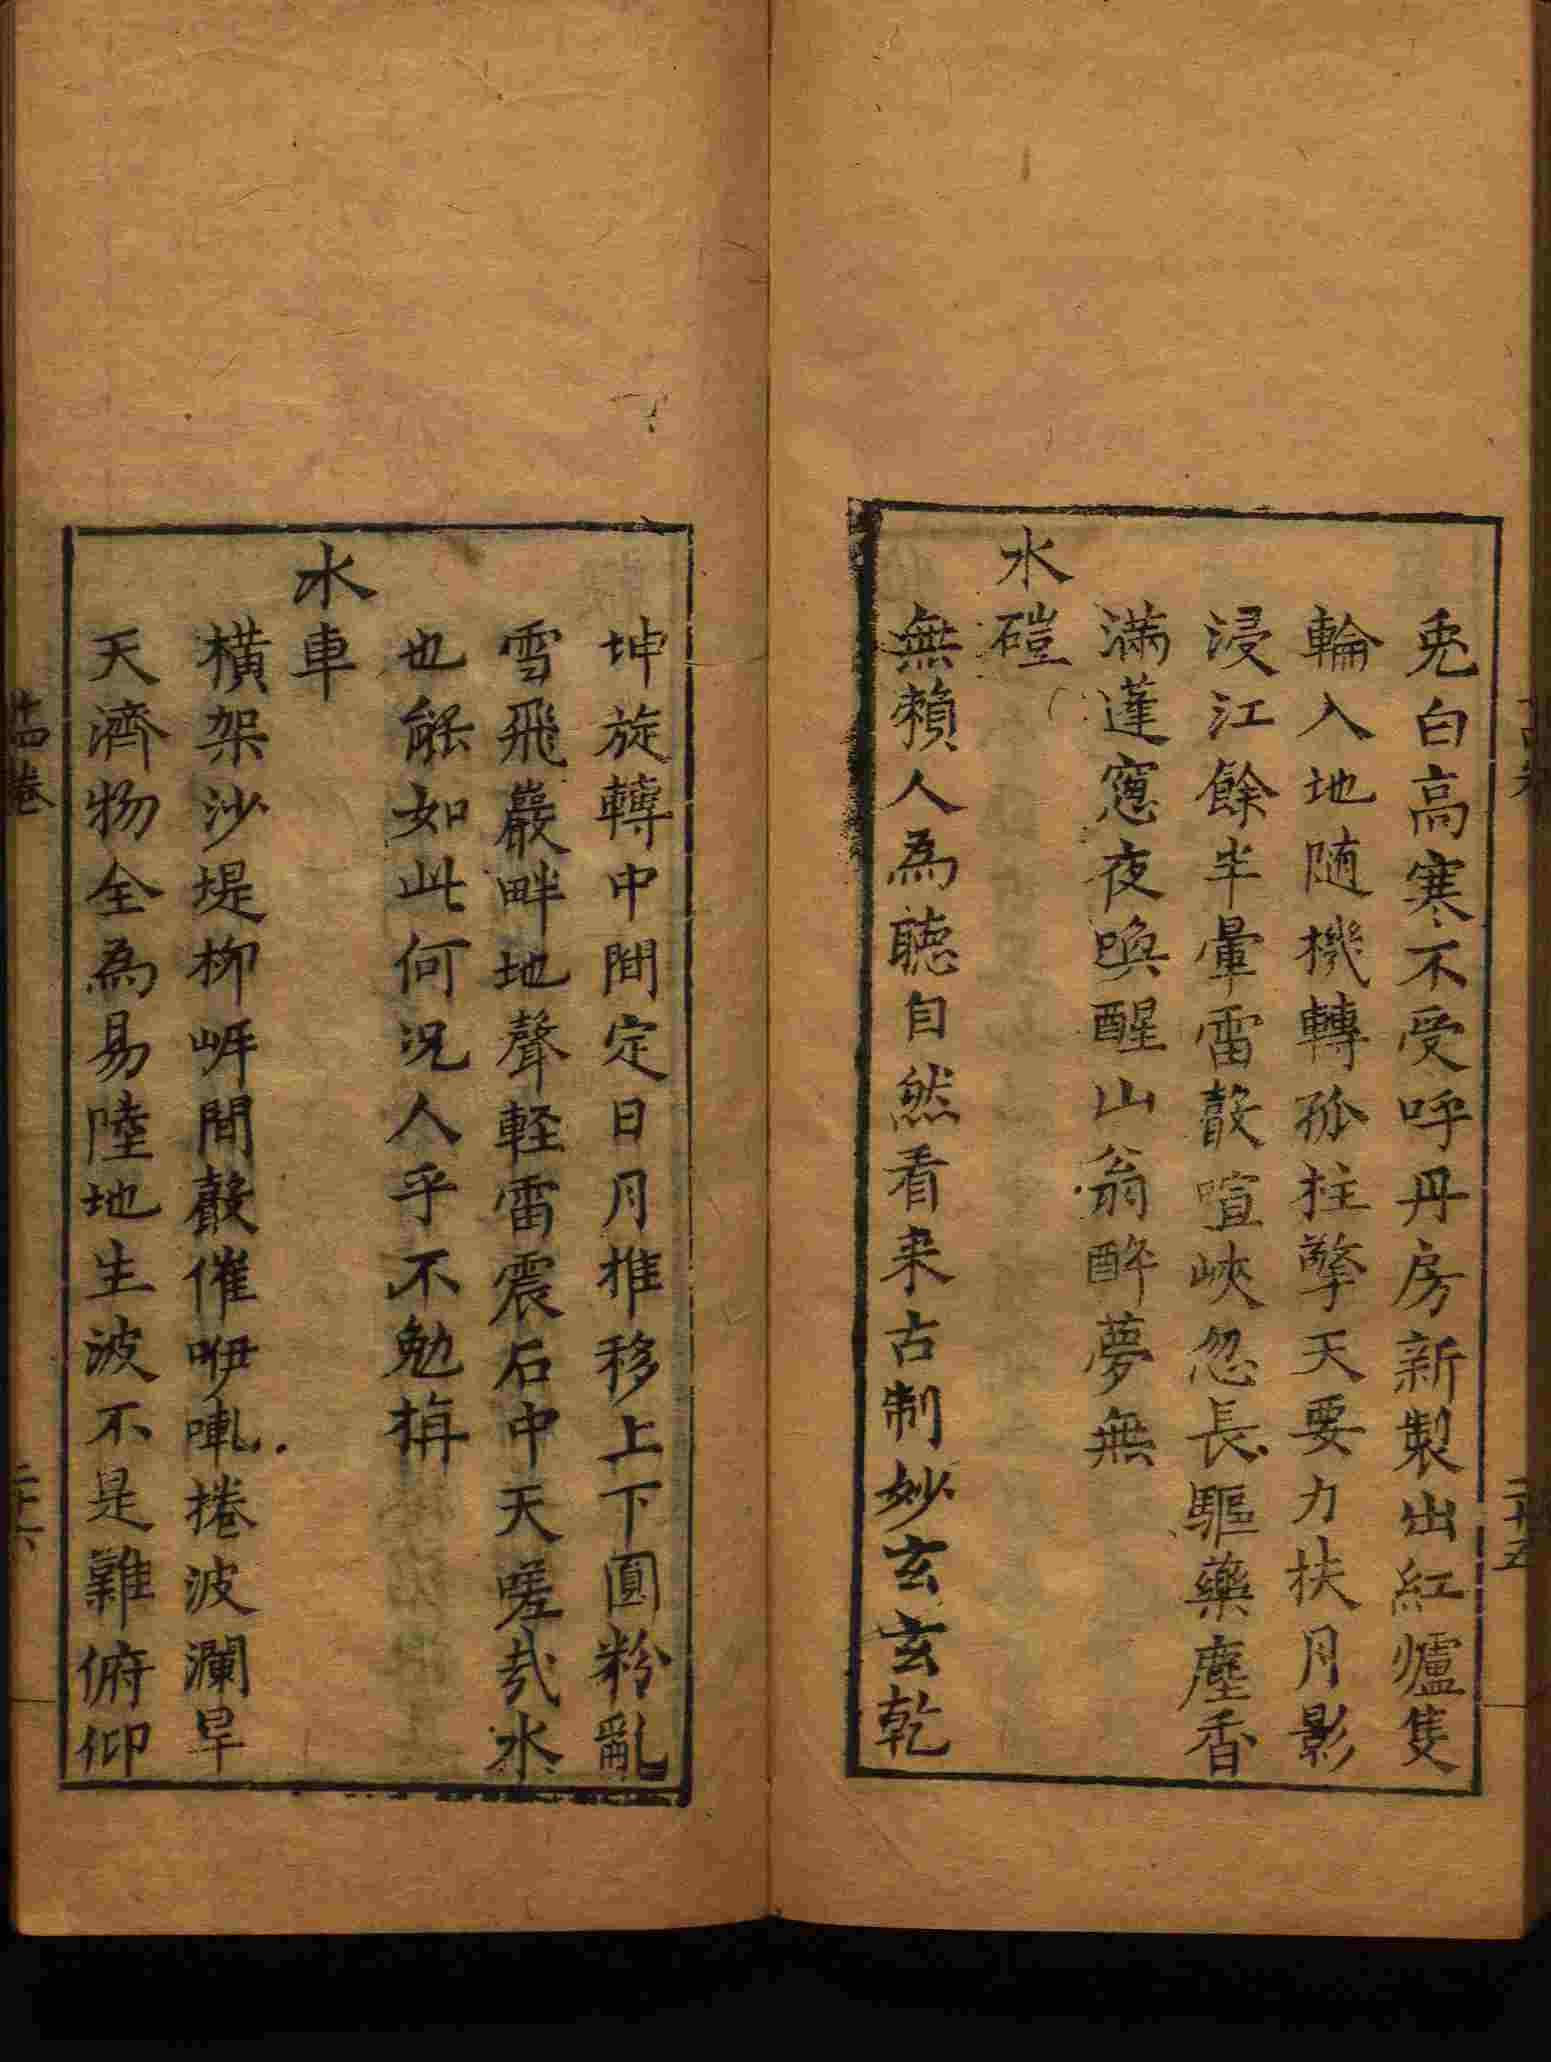 兎白高寒不受呼丹房新製出紅爐隻
輪入地随機轉孤柱擎天要力扶月影
浸江餘半暈雷聲喧峽忽長驅藥塵香
滿蓬窻夜喚醒山翁醉夢無
水磑
無賴人為聽自然看来古制妙玄玄乾
坤旋轉中間定日月推移上下圓粉亂
雪飛巖畔地聲軽雷震石中天嗟哉水
也能如此何况人乎不勉旃
水車
橫架沙堤柳岸間聲催咿軋捲波瀾旱
天濟物全為易陸地生波不是難俯仰
十四卷
二十六
二十五